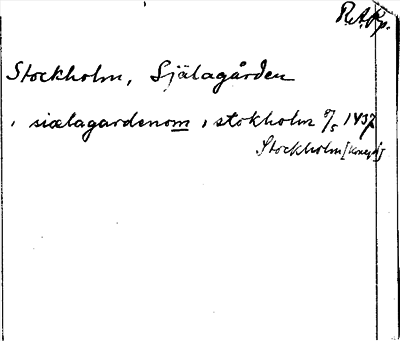 R.A. Pp.
Stockholm, Själagården
i siælagardenom i stokholm 8/5 1437
Stockholm [koncept]